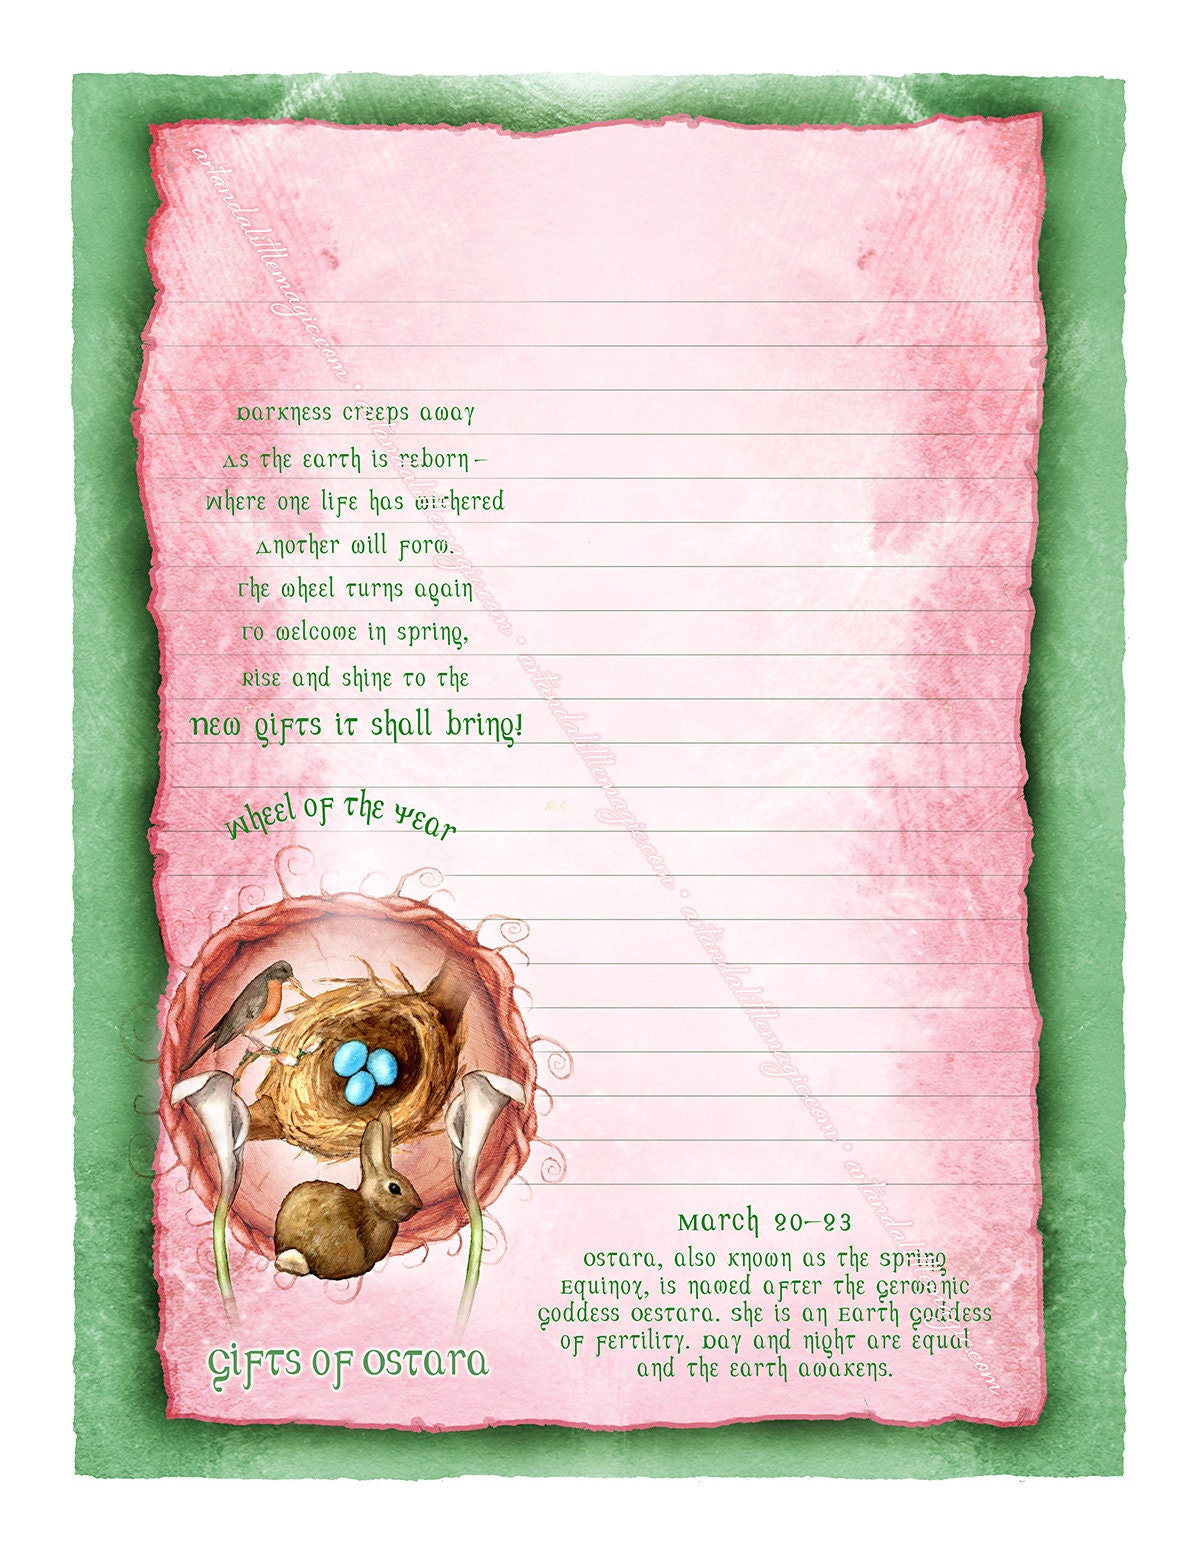 artandalittlemagic.com • artandalittlemagic.com • artandalittlemagic.com • artandalittlemagic.com • artandalittlemagic.com
Darkness creeps away
As the earth is reborn–
Where one life has withered
Another will form.
The wheel turns again
To welcome in spring,
Rise and shine to the
New gifts it shall bring!
Wheel of the Year
Gifts of Ostara
March 20–23
Ostara, also known as the Spring
Equinox, is named after the Germanic
Goddess Oestara. She is an Earth Goddess
of Fertility. Day and night are equal
and the earth awakens.